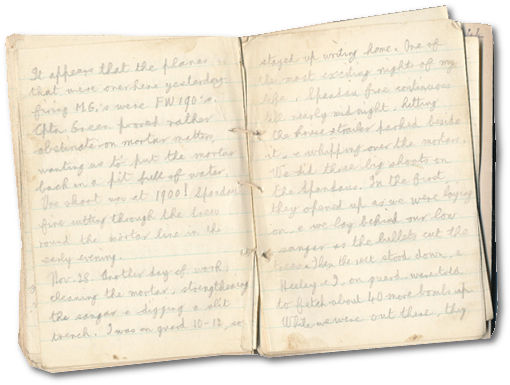 It appears that the planes
that were overhead yesterday
firing M.G.'s were FW 190's.
Cptn. Green proved rather
obstinate on mortar matters,
wanting us to put the mortar
back in a pit full of water.
One shoot was at 1900! Spandau
fire cutting through the trees
round the mortar line in the
early evening.
Nov. 28. Another day of work,
cleaning the mortar, strengthening
the sangar & digging a slit
trench. I was on guard 10-12, so
stayed up writing home. One of
the most exciting nights of my
life. Spandau fire continuous
till nearly midnight, hitting
the house & trailer parked beside
it, & whipping over the mortars.
We did three big shoots on
the Spandaus. In the first
they opened up as we were laying
on & we lay behind our low
sangar as the bullets cut the
trees. Then the sect. stood down, &
Henley & I, on guard, were told
to fetch about 40 more bombs up.
While we were out there, they